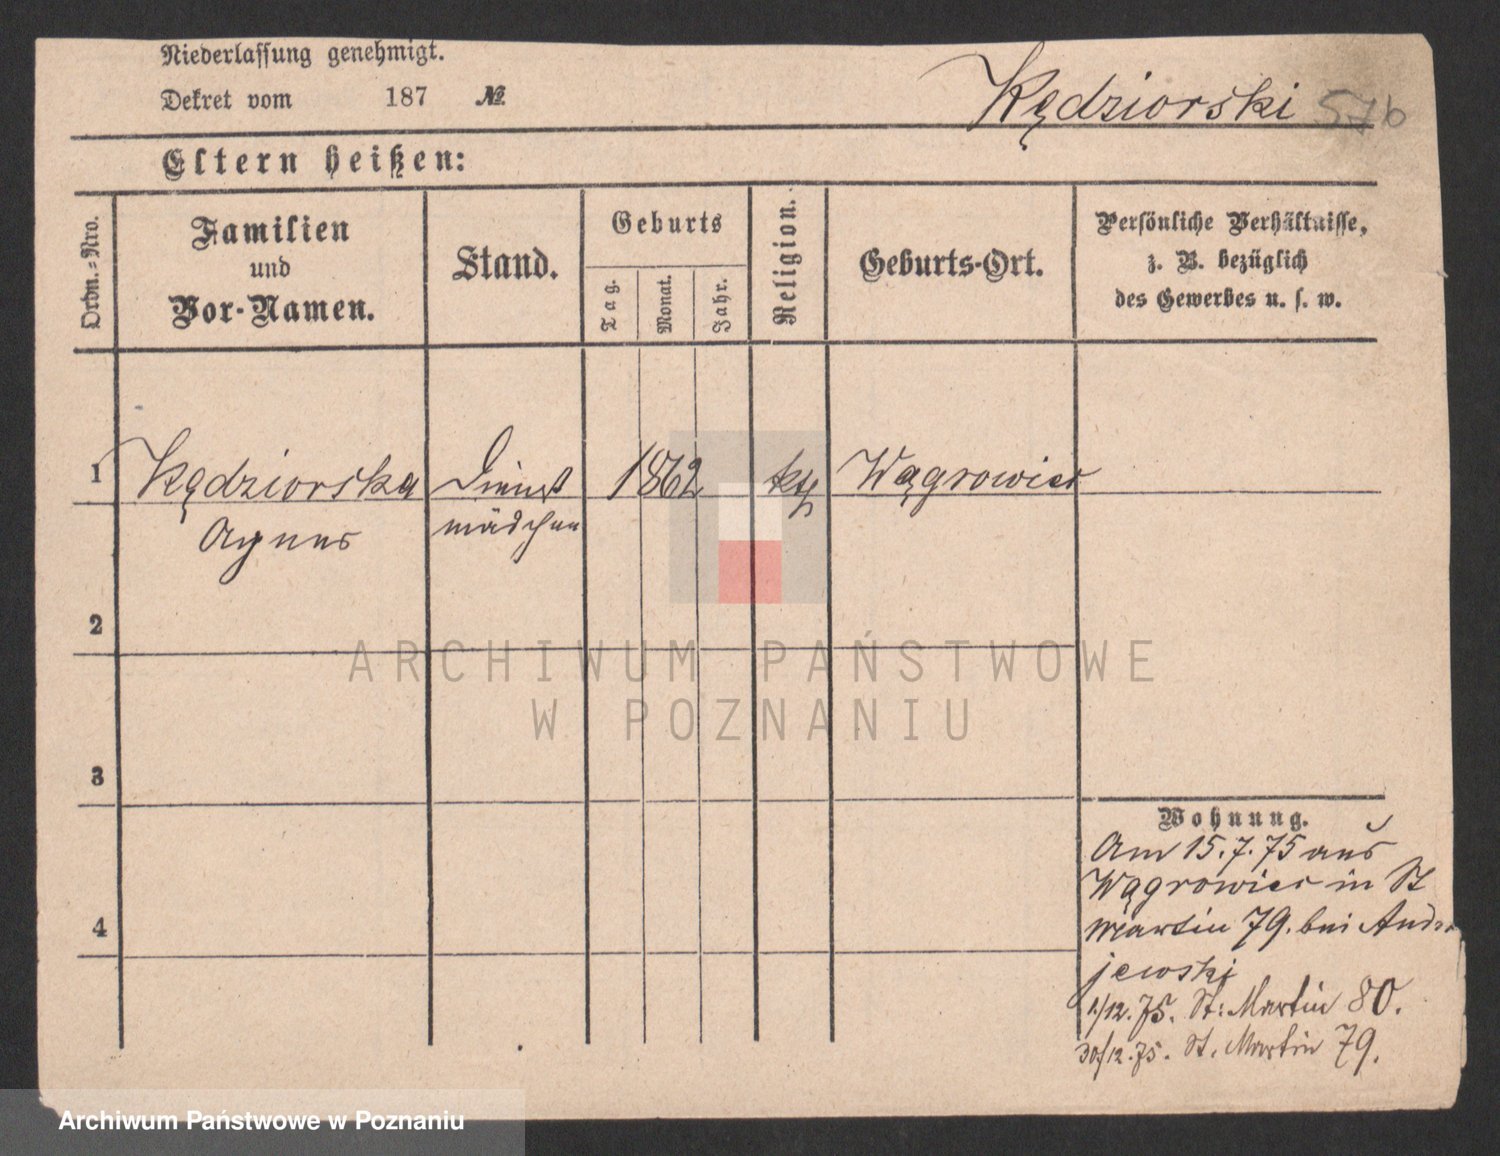 Niederlassung genehmigt.
Dekret vom 187 №
Kędziorski 57b
Eltern heißen:
Ordn.=Nro.
Familien
und
Vor-Namen.
Stand.
Geburts
Tag.
Monat.
Jahr.
Religion.
Geburts-Ort.
Persönliche Verhältnisse,
z. B. bezüglich
des Gewerbes u. s. w.
1 Kędziorska Dienst 1862 kth Wągrowiec
Agnes mädchen
2
ARCHIWUM PAŃSTWOWE
W POZNANIU
3
Wohnung.
Am 15.7.75 aus
Wągrowiec in St
4
Martin 79. bei Andrz
jewski
1/12.75. St: Martin 80.
30/12.75. St. Martin 79.
Archiwum Państwowe w Poznaniu